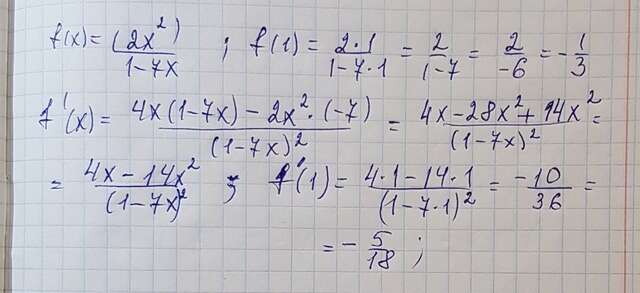 f(x) = (2x²) / 1-7x ; f(1) = 2·1 / 1-7·1 = 2 / 1-7 = 2 / -6 = - 1/3
f'(x) = 4x(1-7x) - 2x²·(-7) / (1-7x)² = 4x-28x²+14x² / (1-7x)² =
= 4x-14x² / (1-7x)² ; f'(1) = 4·1-14·1 / (1-7·1)² = -10 / 36 =
= - 5/18 ;